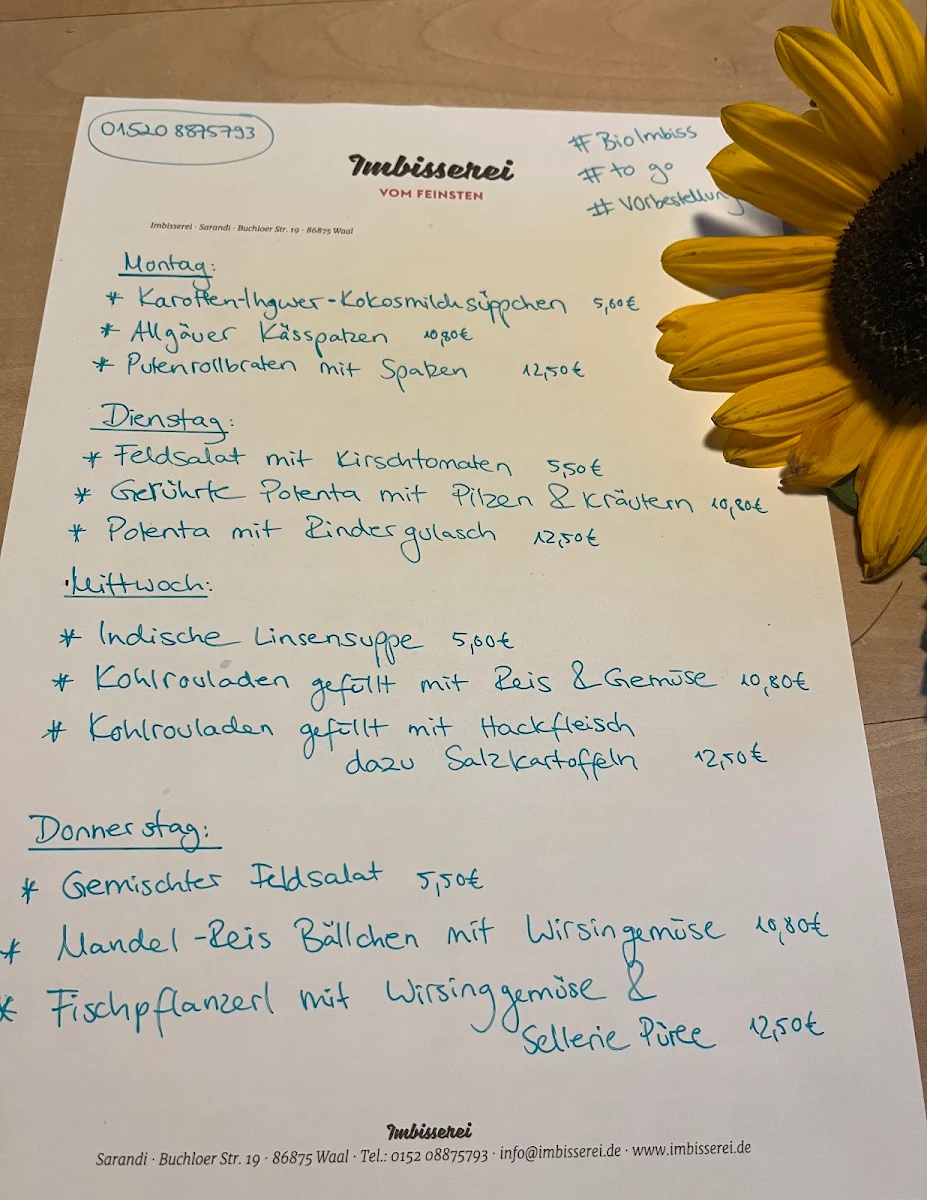 01520 8875793
Imbisserei
VOM FEINSTEN
#BioImbiss
#to go
#Vorbestellung
Imbisserei · Sarandi · Buchloer Str. 19 · 86875 Waal
Montag:
* Karotten-Ingwer-Kokosmilchsüppchen 5,00€
* Allgäuer Kässpatzen 10,80€
* Putenrollbraten mit Spatzen 12,50€
Dienstag:
* Feldsalat mit Kirschtomaten 5,50€
* Gerührte Polenta mit Pilzen & Kräutern 10,80€
* Polenta mit Rindergulasch 12,50€
Mittwoch:
* Indische Linsensuppe 5,00€
* Kohlrouladen gefüllt mit Reis & Gemüse 10,80€
* Kohlrouladen gefüllt mit Hackfleisch
dazu Salzkartoffeln 12,50€
Donnerstag:
* Gemischter Feldsalat 5,50€
* Mandel-Reis Bällchen mit Wirsingemüse 10,80€
* Fischpflanzerl mit Wirsinggemüse &
Sellerie Püree 12,50€
Imbisserei
Sarandi · Buchloer Str. 19 · 86875 Waal · Tel.: 0152 08875793 · info@imbisserei.de · www.imbisserei.de